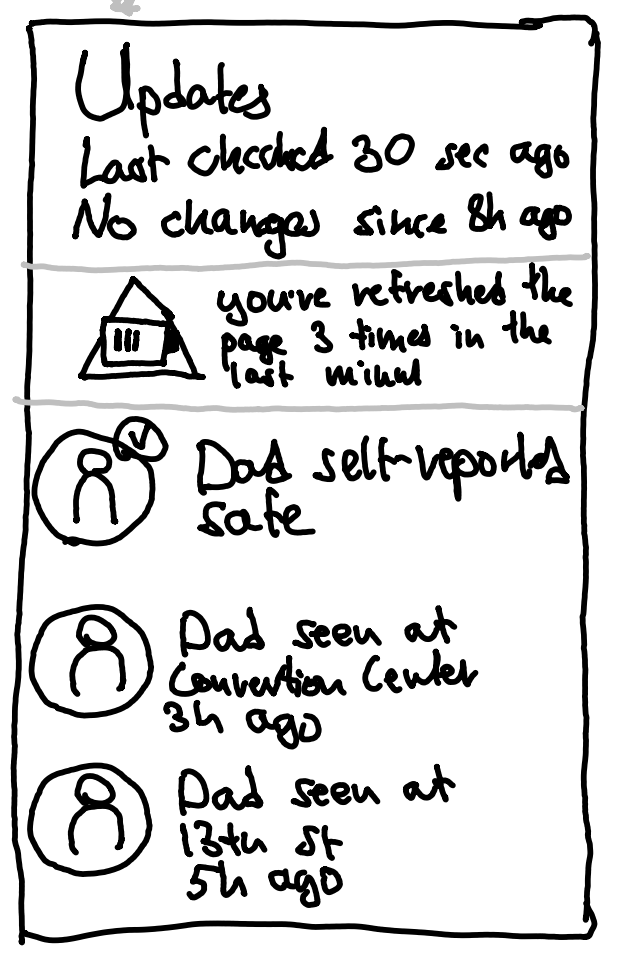 Updates
Last checked 30 sec ago
No changes since 8h ago
you've refreshed the
page 3 times in the
last minut
Dad self-reported
safe
Dad seen at
Convention Center
3h ago
Dad seen at
13th st
5h ago